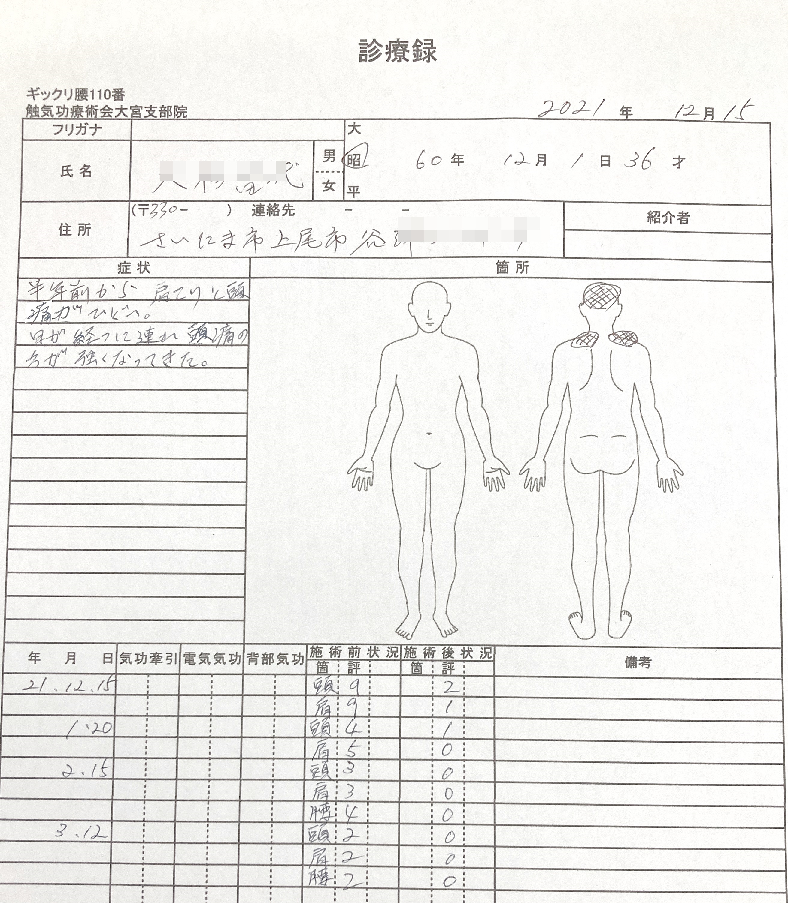 診療録
ギックリ腰110番
触気功療術会大宮支部院
2021年 12月15
フリガナ
氏名
男
女
大
昭
平
60年 12月 1日 36才
住所
(〒330- ) 連絡先 - -
さいたま市上尾市谷
紹介者
症状
箇所
半年前から 肩こりと頭
痛がひどい。
日が経つに連れ 頭痛の
方が 強くなってきた。
年 月 日 気功牽引 電気気功 背部気功 施術前状況 施術後状況 備考
箇 評 箇 評
21.12.15 頭 9 2
肩 9 1
1.20 頭 4 1
肩 5 0
2.15 頭 3 0
肩 3 0
腰 4 0
3.12 頭 2 0
肩 2 0
腰 2 0